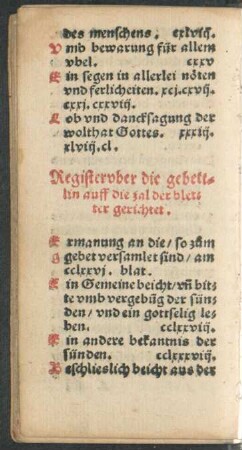 des menschens. cxlvij.
Vmb bewarung für allem
vbel. cxxv
Ein segen in allerlei nöten
vnd ferlicheiten. xcj.cxvij.
cxxj. cxxviij.
Lob vnd dancksagung der
wolthat Gottes. xxxiij.
xlviij.cl.
Register vber die gebett-
lin auff die zal der blet-
ter gerichtet.
Ermanung an die / so zům
gebet versamlet sind / am
cclxxvj. blat.
Ein Gemeine beicht / vñ bit-
te vmb vergebũg der sün-
den / vnd ein gottselig le-
ben. cclxxvij.
Ein andere bekantnis der
sünden. cclxxxviij.
Beschlieslich beicht aus der